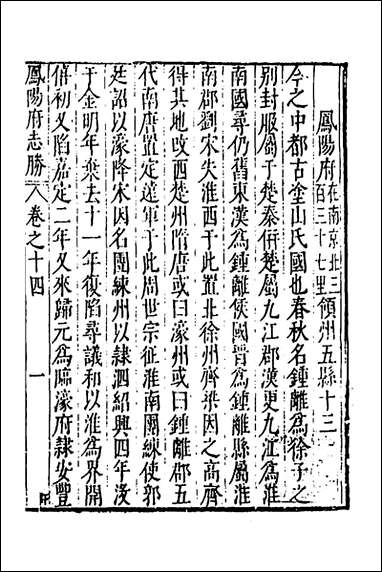 鳳陽府在南京北三百三十七里領州五縣十三
今之中都古塗山氏國也春秋名鍾離爲徐子之
別封服屬于楚秦併楚屬九江郡漢更九江爲淮
南國尋仍舊東漢爲鍾離侯國晉爲鍾離縣屬淮
南郡劉宋失淮西于此置北徐州齊梁因之高齊
得其地改西楚州隋唐或曰濠州或曰鍾離郡五
代南唐置定遠軍于此周世宗征淮南團練使郭
廷詔以濠降宋因名團練州以隸泗紹興四年沒
于金明年棄去十一年復陷尋議和以淮爲界開
禧初又陷嘉定二年又來歸元爲臨濠府隸安豐
鳳陽府志勝 卷之十四 一